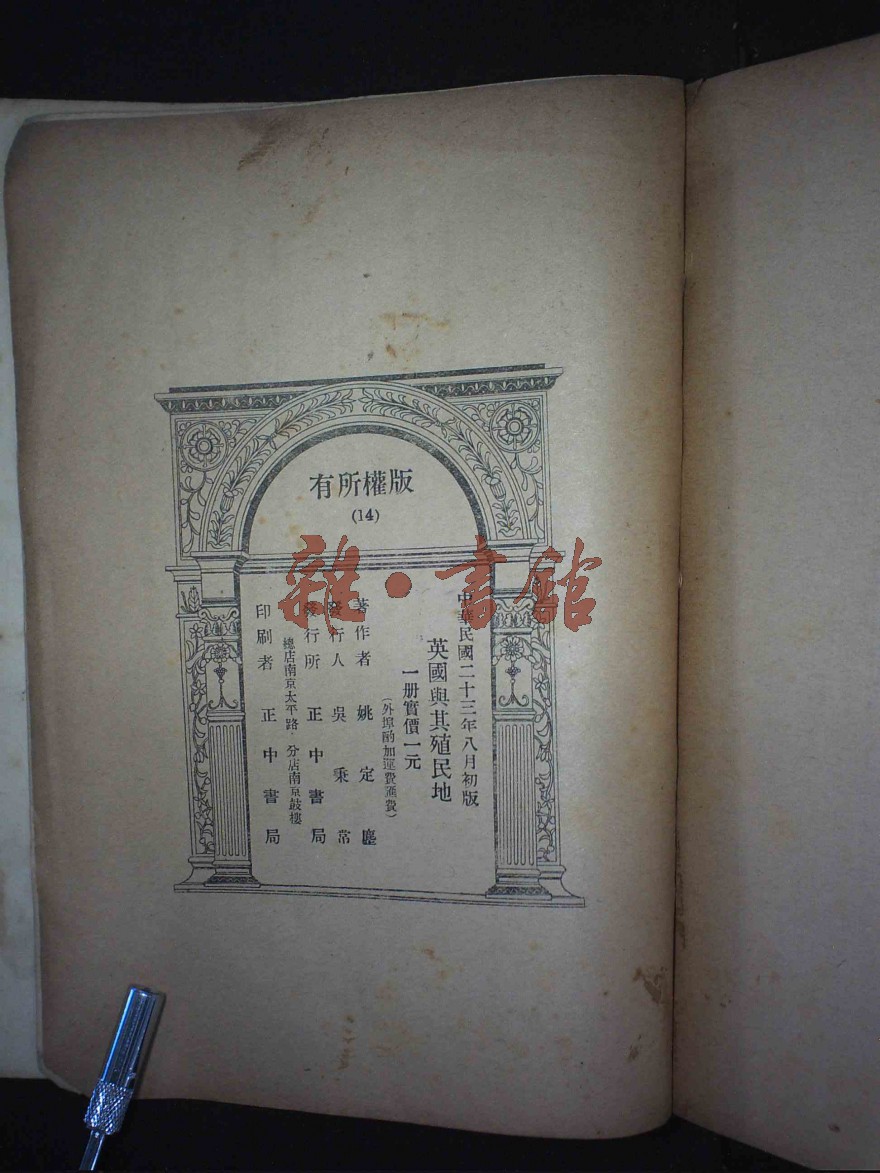 版權所有
(14)
雜·書館
中華民國二十三年八月初版
英國與其殖民地
一册實價一元
(外埠酌加運費滙費)
著作者 姚定塵
發行人 吳秉常
發行所 正中書局
總店南京太平路·分店南京鼓樓
印刷者 正中書局